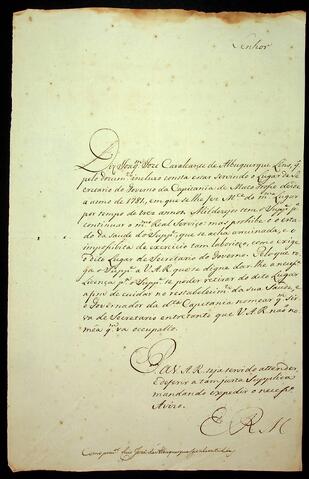 Senhor
Diz Joaq.m Joze Cavalcante de Albuquerque Lins, q.
pelo docum.to incluzo consta estar servindo o Lugar de Se
cretario do Governo da Capitania de Mato Groso desde
o anno de 1781, em que lhe fez M.ce do m.mo Lugar
por tempo de tres annos
continuar o m.mo Real Serviço: mas prohibe o esta
do da saude do Supp.e, que se acha arruinada, e o
imposibilita de exercicio tam laboriozo, como exige
o dito Lugar de Secretario do Governo. Pelo que ro
ga o Supp.e a V.A.R. que se digne dar lhe a necess.a
Licença p.a o Supp.e se poder retirar do dito Lugar
afim de cuidar no restabelecim.to da sua Saude, e
o Governador da d.ta Capitania nomear q.m sir
va de Secretario entretanto que V.A.R. não no
mêa q.m vá occupallo.
P. a V.A.R. seja servido attender,
e deferir a tam justa Supplica
mandando expedir o necess.o
Avizo.
E. R. M.
Como proc.or Luis José de Albuquerque